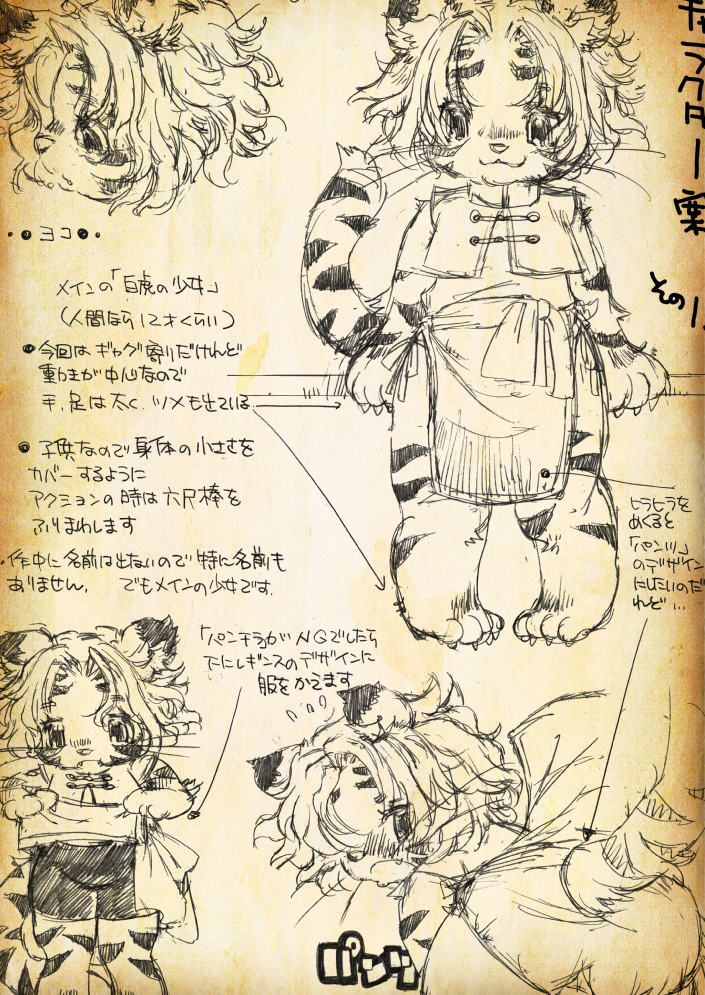 キャラクター案
その1.
ヨコ
メインの「白虎の少女」
(人間なら12才くらい)
今回はギャグ寄りだけれど
動きが中心なので
手、足は太く、ツメも出ている
子供なので身体の小ささを
カバーするように
アクションの時は六尺棒を
ふりまわします
作中に名前は出ないので特に名前も
ありません。 でもメインの少女です。
ヒラヒラを
めくると
「パンツ」
のデザイン
にしたいのだ
けれど…
「パンチラ」がNGでしたら
下にレギンスのデザインに
服をかえます
パンツ